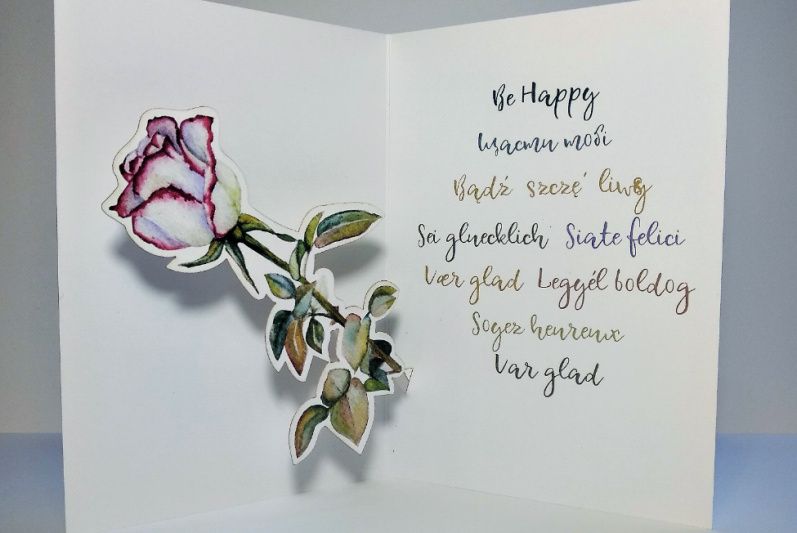 Be Happy
щасти тобі
Bądź szczę' liwy
Sei gluecklich Siate felici
Vær glad Legyél boldog
Soyez heureux
Var glad